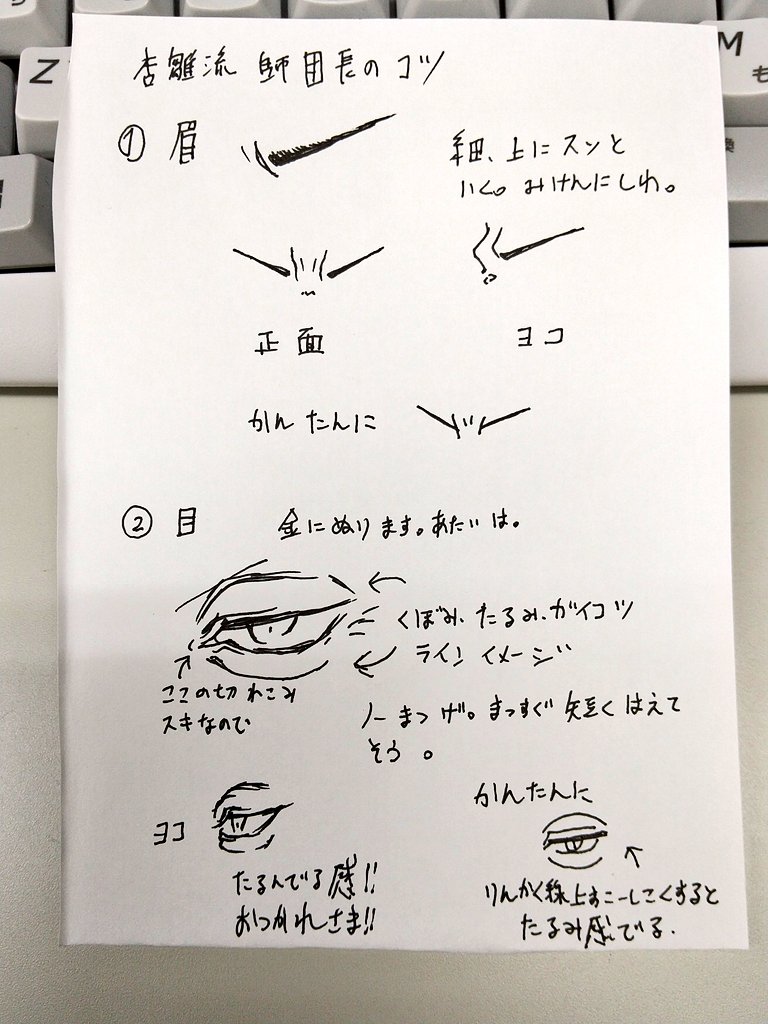 杏雛流 師団長のコツ
① 眉
細、上にスンと
いく。みけんにしわ。
正面
ヨコ
かんたんに
② 目
金にぬります。あたいは。
くぼみ、たるみ、ガイコツ
ライン イメージ
ここの切れこみ
スキなので
ノーまつげ。まっすぐ短くはえて
そう。
ヨコ
たるんでる感!!
おつかれさま!!
かんたんに
りんかく線上すこーしこくすると
たるみ感でる.
Z
M
も
換